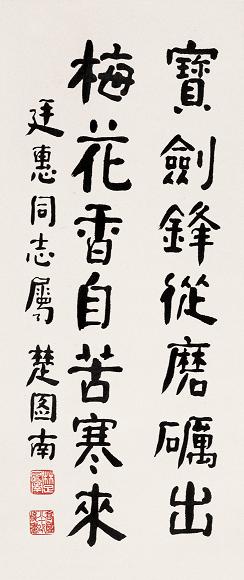 寶劍鋒從磨礪出
梅花香自苦寒來
廷惠同志屬 楚圖南